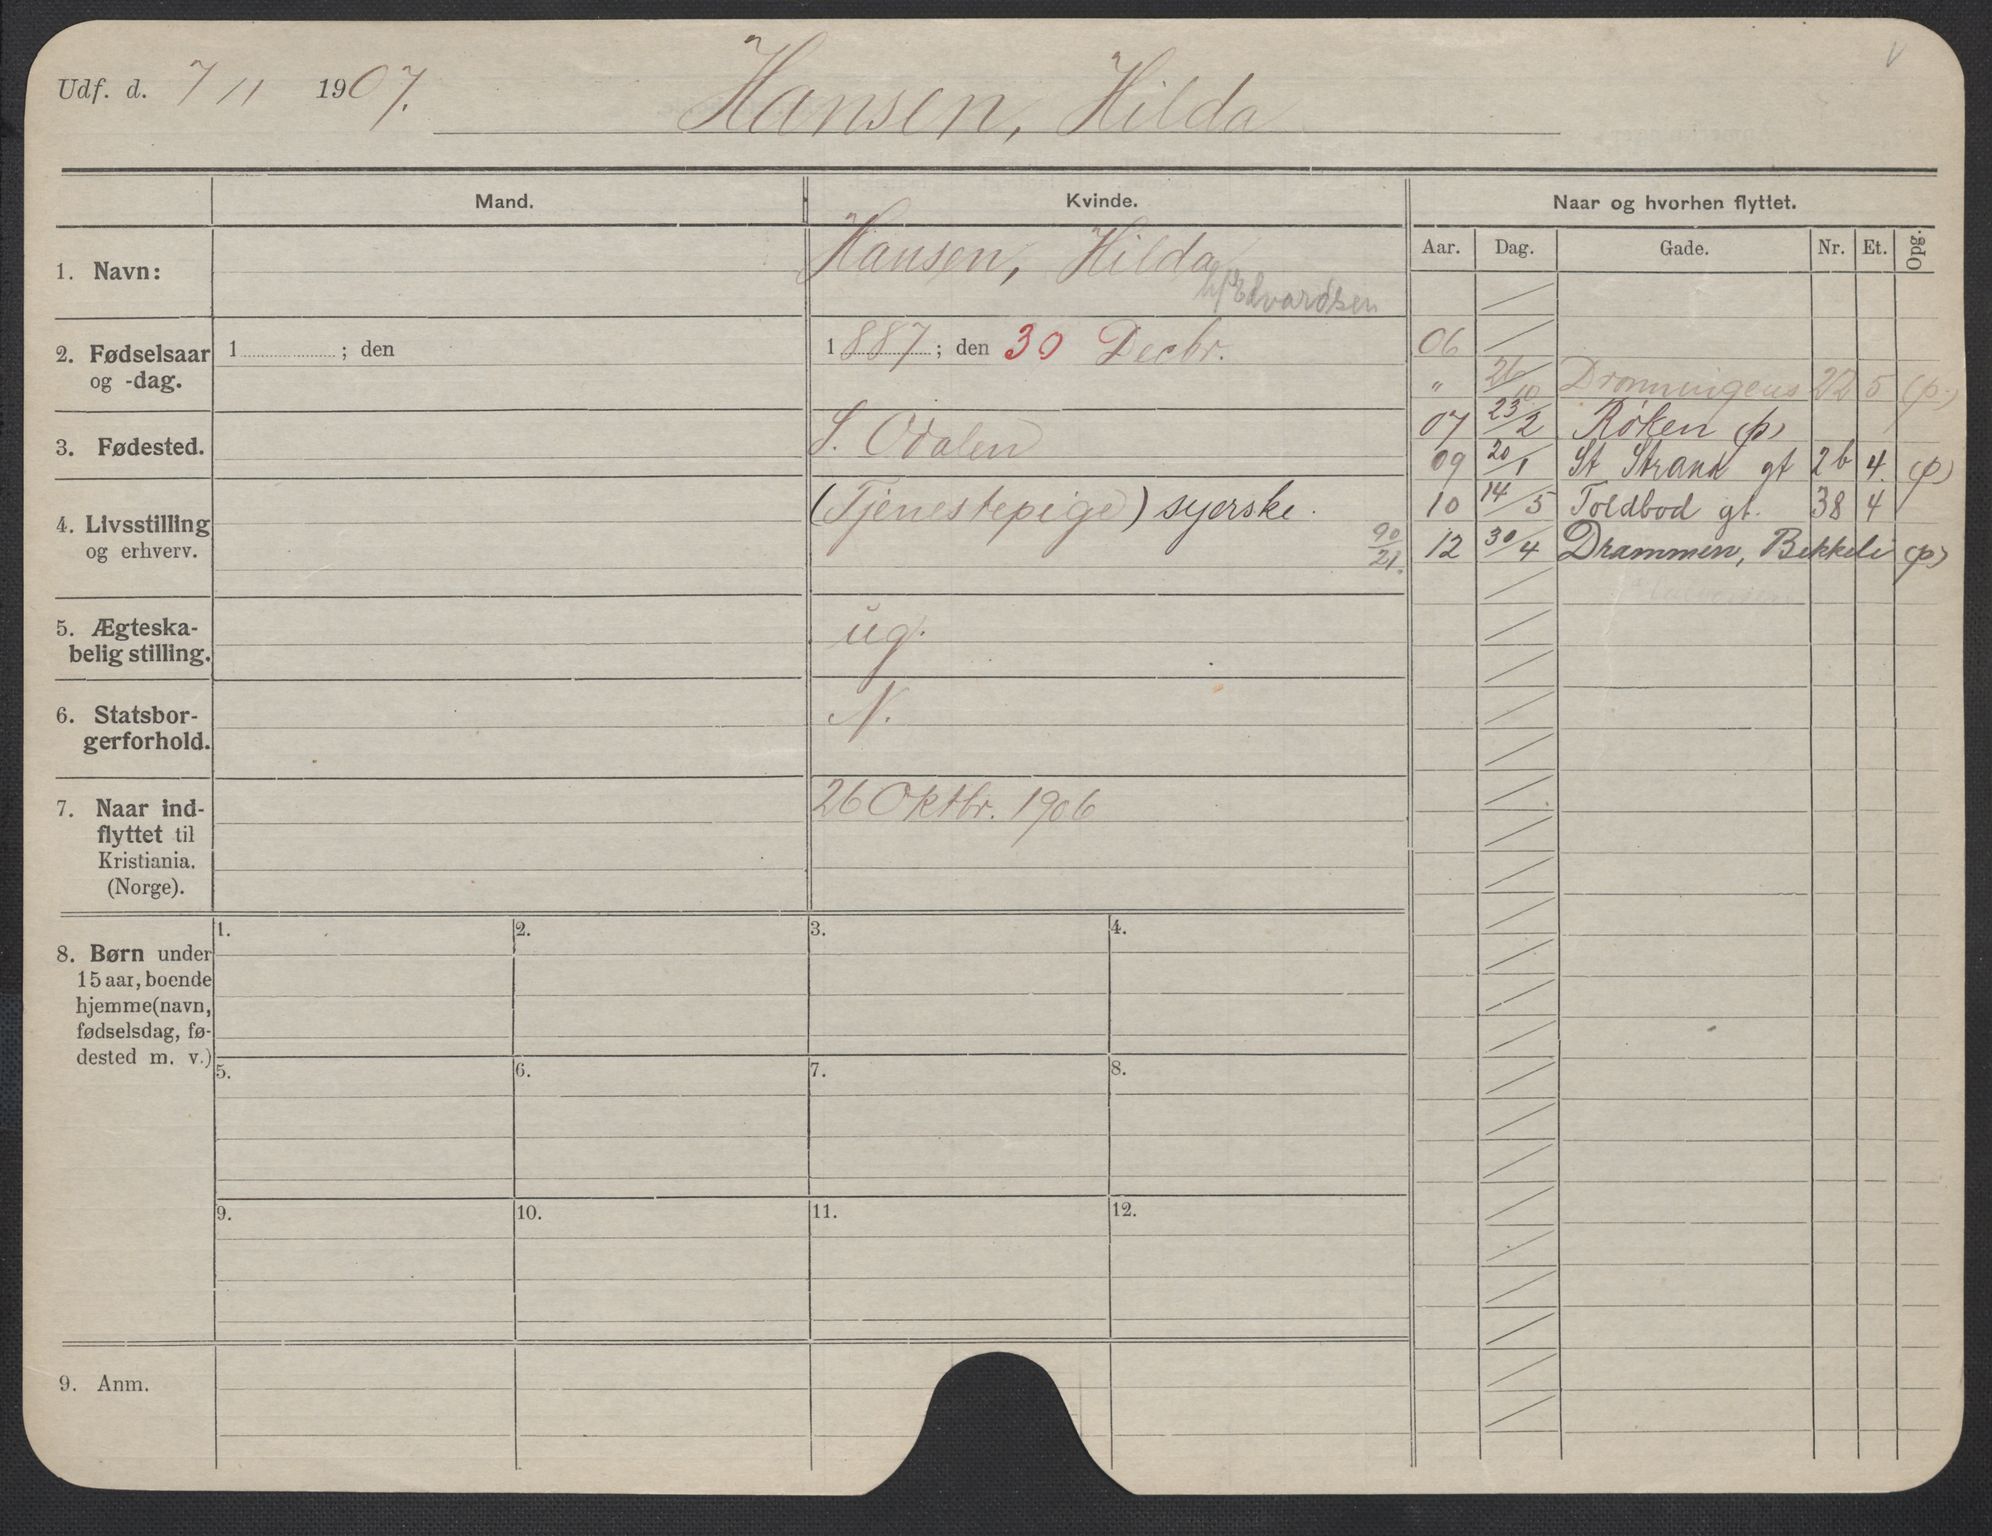 Udf. d. 7/11 1907.
Hansen, Hilda
Mand.
Kvinde.
Naar og hvorhen flyttet.
Aar. Dag. Gade. Nr. Et. Opg.
1. Navn:
Hansen, Hilda
Edvardsen
2. Fødselsaar
og -dag.
1 ; den
1887; den 30 Decbr.
3. Fødested.
S. Odalen
4. Livsstilling
og erhverv.
(Tjenestepige) syerske.
90/21.
5. Ægteska-
belig stilling.
ug.
6. Statsbor-
gerforhold.
N.
7. Naar ind-
flyttet til
Kristiania.
(Norge).
26 Oktbr. 1906
06
" 26/10 Dronningens 22 5 (p.)
07 23/2 Røken (p)
09 20/1 St Strand gt 26 4. (p)
10 14/5 Toldbod gt. 38 4
12 30/4 Drammen, Bekkeli (p)
8. Børn under
15 aar, boende
hjemme (navn,
fødselsdag, fø-
dested m. v.)
1. 2. 3. 4.
5. 6. 7. 8.
9. 10. 11. 12.
9. Anm.